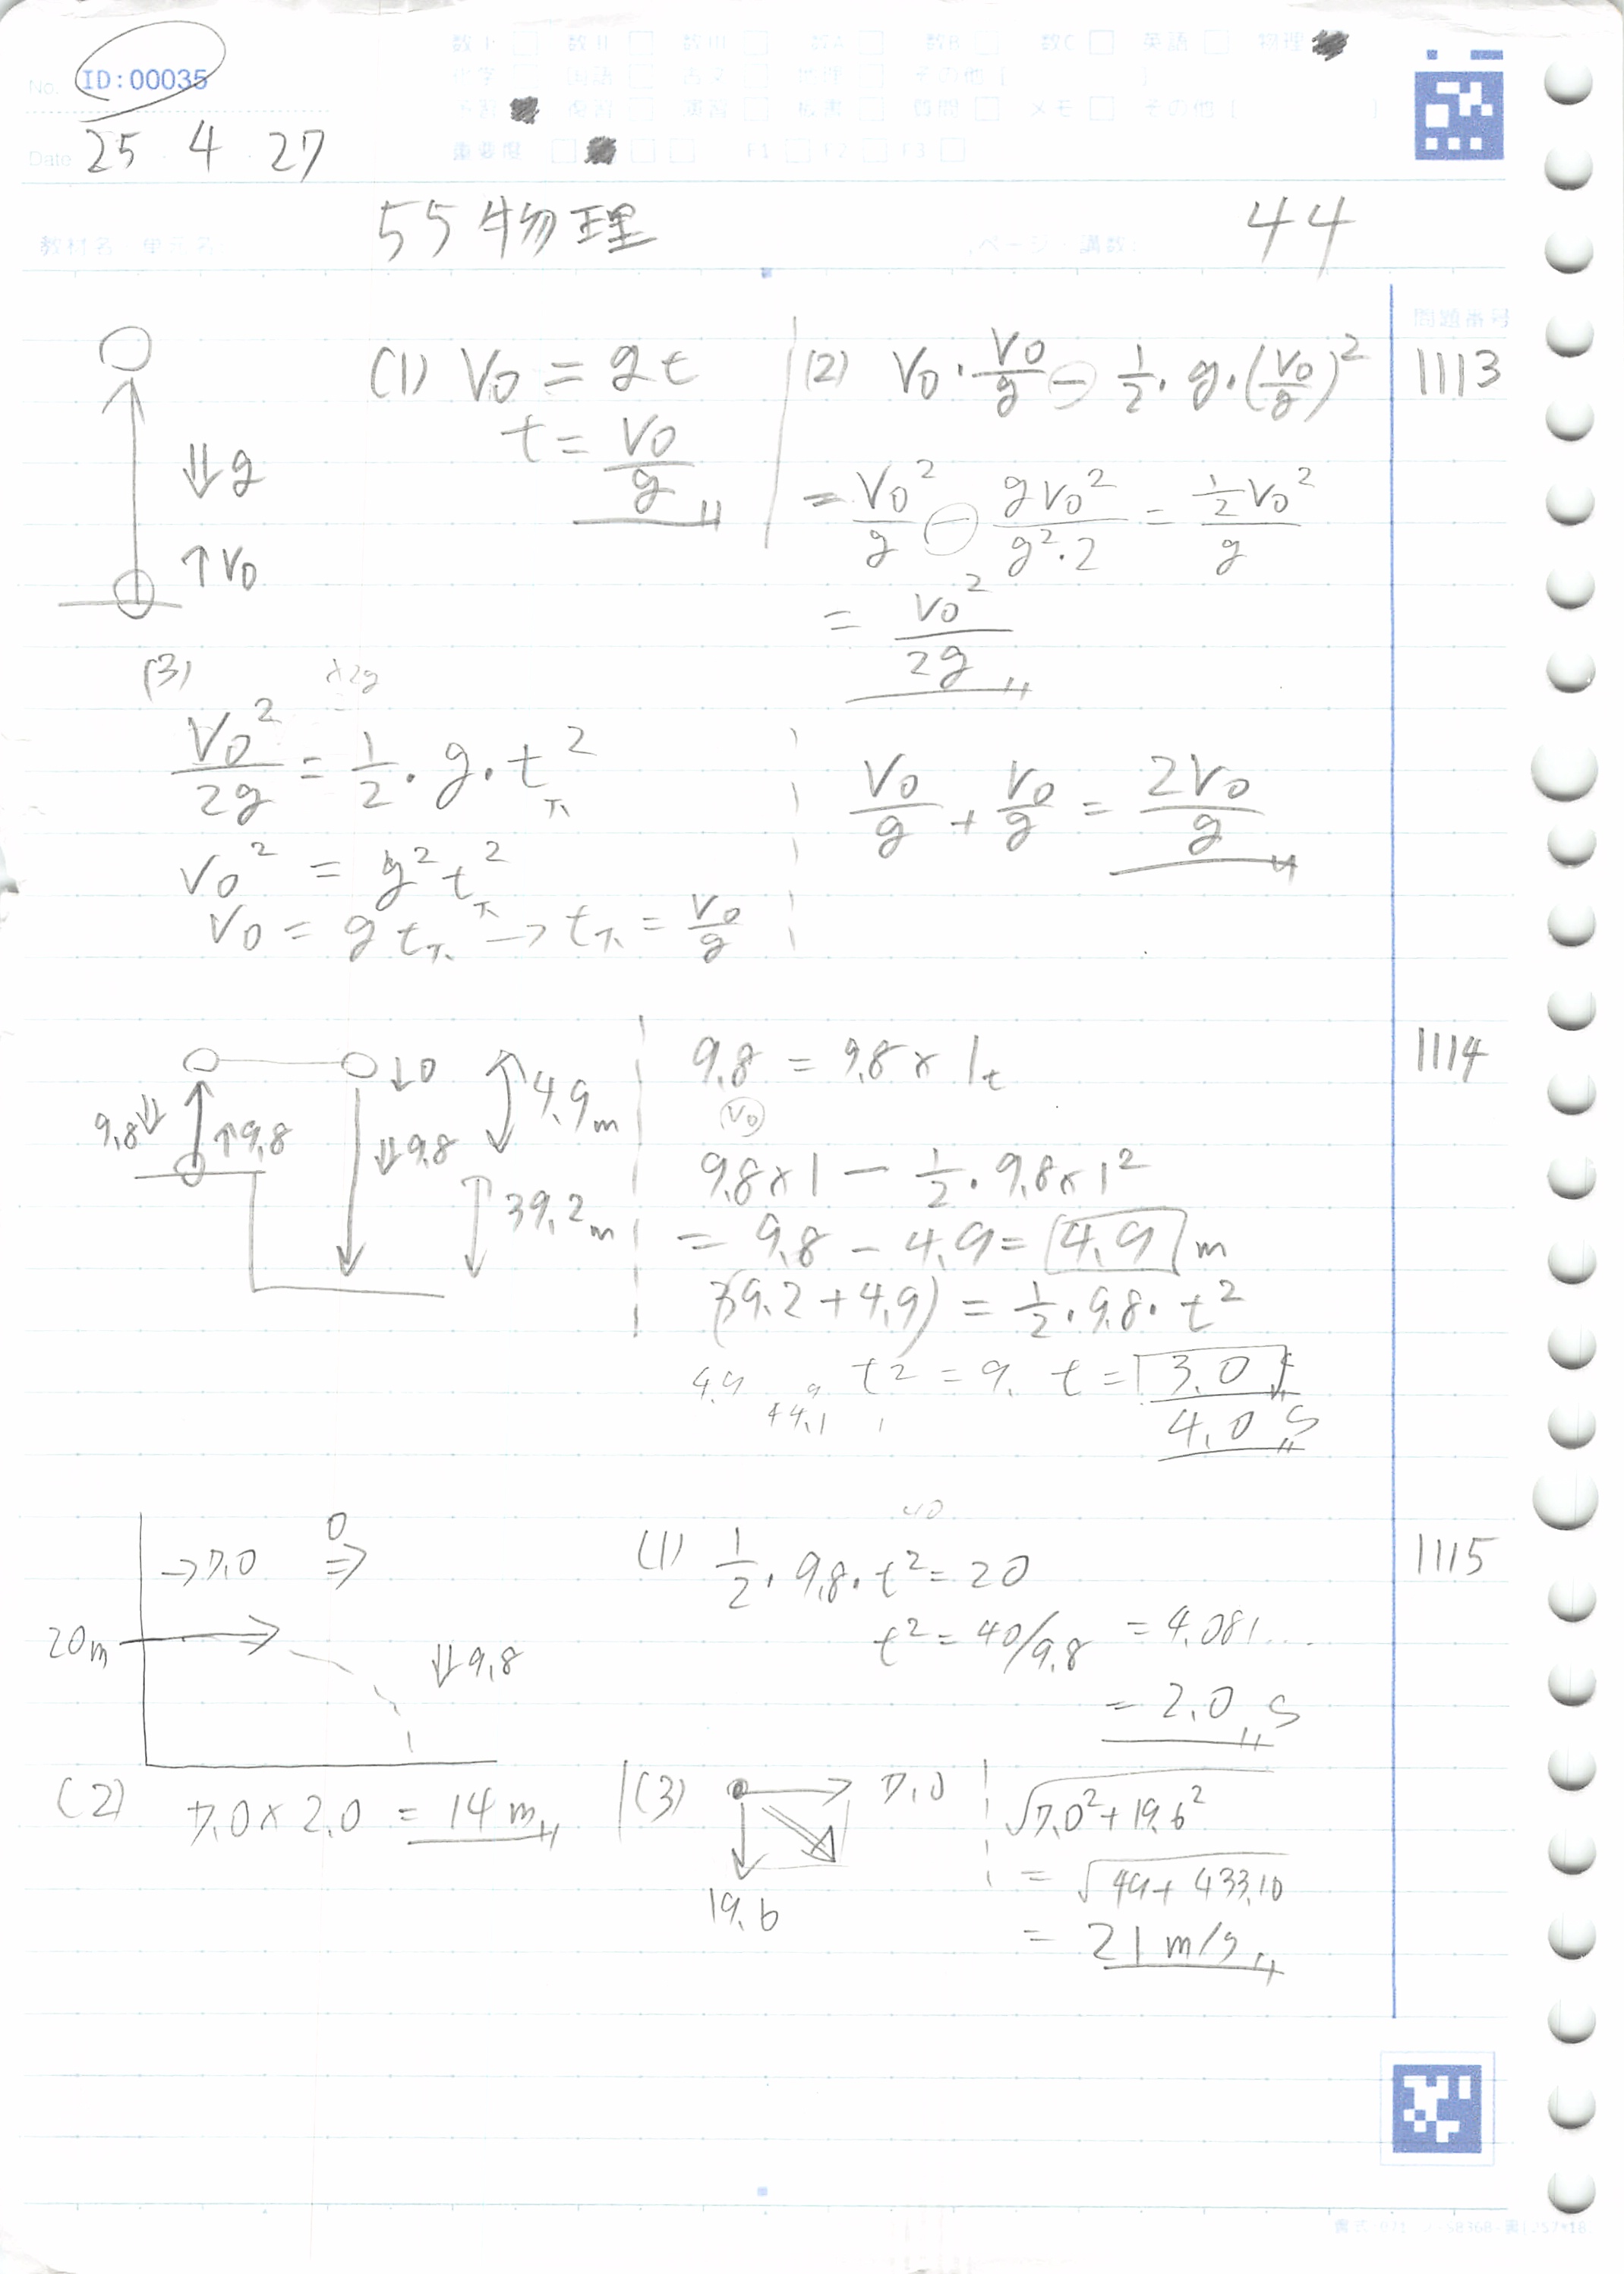 数I 数II 数III 数A 数B 数C 英語 物理
No. ID:00035
化学 国語 古文 地理 その他 [ ]
予習 復習 演習 板書 質問 メモ その他 [ ]
Date 25 · 4 · 27
重要度 F1 F2 F3
教材名・単元名 55物理 ページ・講数: 44
問題番号
1113
(1) V0 = gt
t = V0/g
(2) V0・V0/g - 1/2・g・(V0/g)²
= V0²/g - gV0²/g²・2 = 1/2V0²/g
= V0²/2g
↓g
↑V0
(3)
×2g
V0²/2g = 1/2・g・t下²
V0² = g²t下²
V0 = gt下 → t下 = V0/g
V0/g + V0/g = 2V0/g
1114
↓0
4.9m
9.8↓
↑9.8
↓9.8
39.2m
9.8 = 9.8×1t
V0
9.8×1 - 1/2・9.8×1²
= 9.8 - 4.9 = 4.9 m
(39.2+4.9) = 1/2・9.8・t²
4.9
t² = 9. t = 3.0
4.0 s
1115
→7.0
0
⇒
20m
↓9.8
(1) 1/2・9.8・t² = 20
40
t² = 40/9.8 = 4.081...
= 2.0 s
(2) 7.0×2.0 = 14m
(3) 7.0
19.6
√7.0²+19.6²
= √49+433.10
= 21 m/s